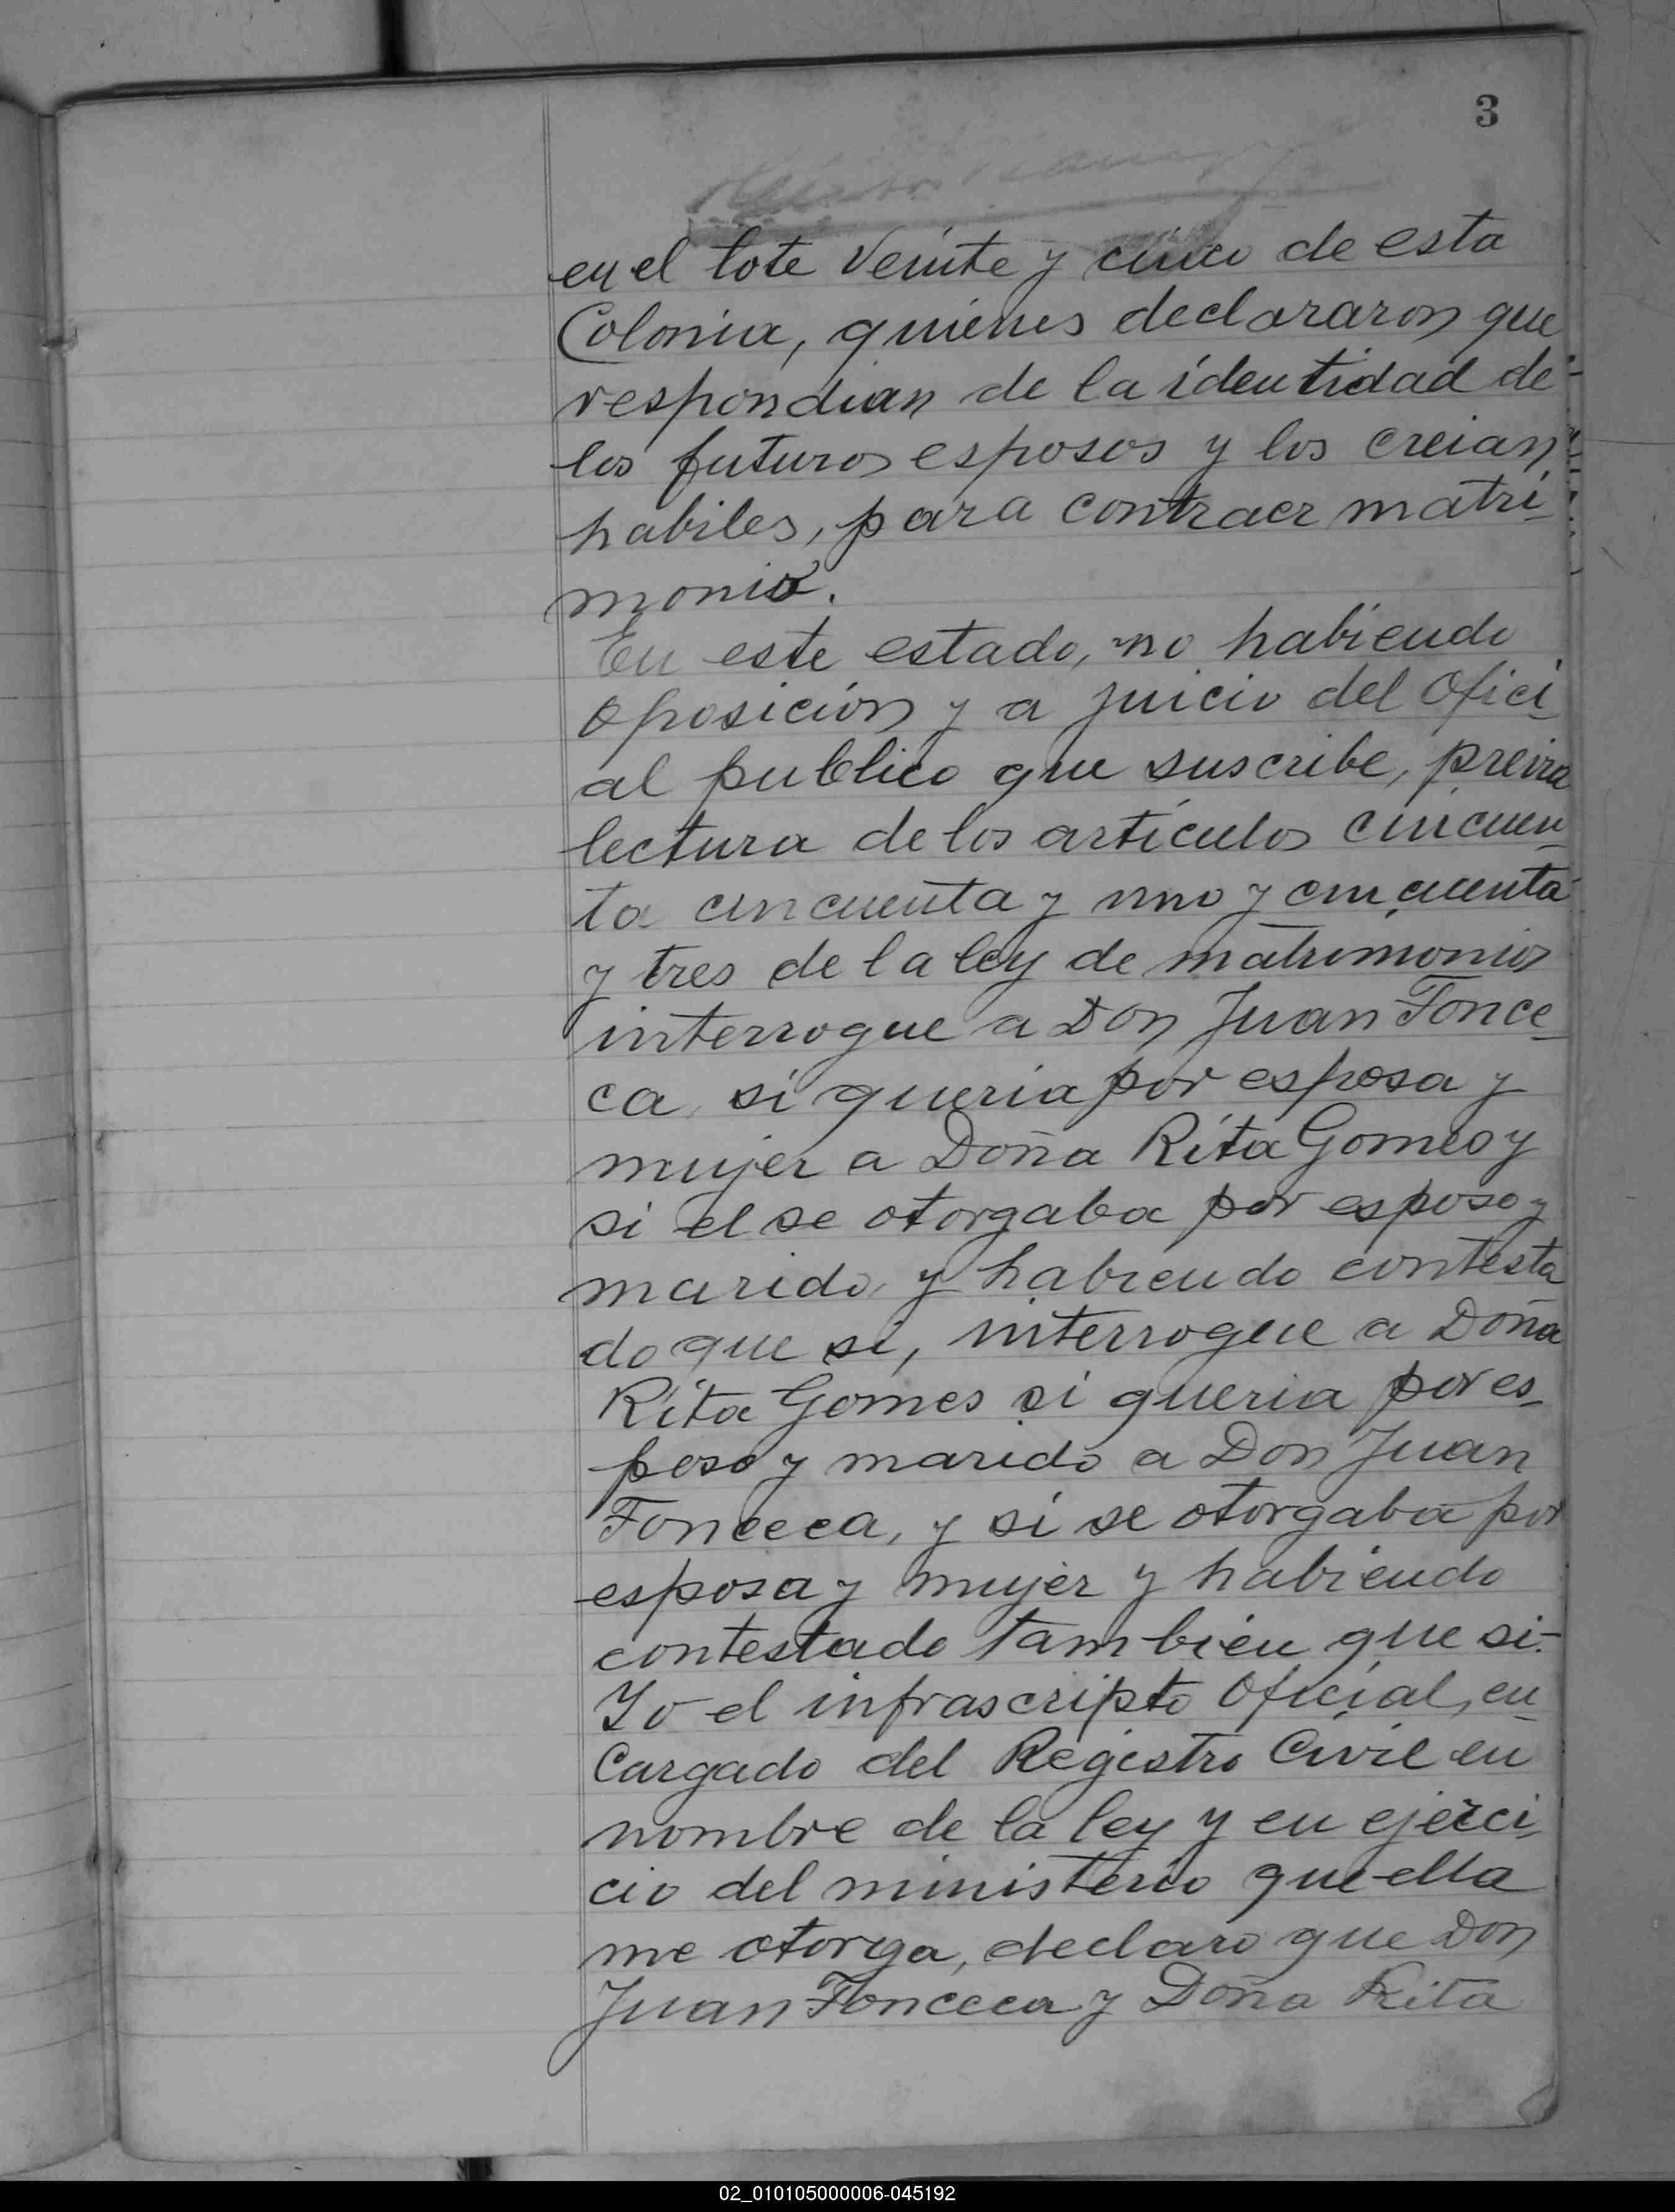 3
en el lote veinte y cinco de esta
Colonia, quienes declararon que
respondian de la identidad de
los futuros esposos y los creian
habiles, para contraer matri-
monio.
En este estado, no habiendo
oposición y a juicio del Ofici-
al publico que suscribe, previa
lectura de los artículos cincuen-
ta cincuenta y uno y cincuenta
y tres de la ley de matrimonio
interrogue a Don Juan Fonce-
ca, si queria por esposa y
mujer a Doña Rita Gomes y
si el se otorgaba por esposo y
marido, y habiendo contesta
do que si, interrogue a Doña
Rita Gomes si queria por es-
poso y marido a Don Juan
Fonceca, y si se otorgaba por
esposa y mujer y habiendo
contestado tambien que si.-
Yo el infrascripto Oficial, en-
cargado del Registro Civil en
nombre de la ley y en ejerci-
cio del ministerio que ella
me otorga, declaro que Don
Juan Fonceca y Doña Rita
02_010105000006-045192